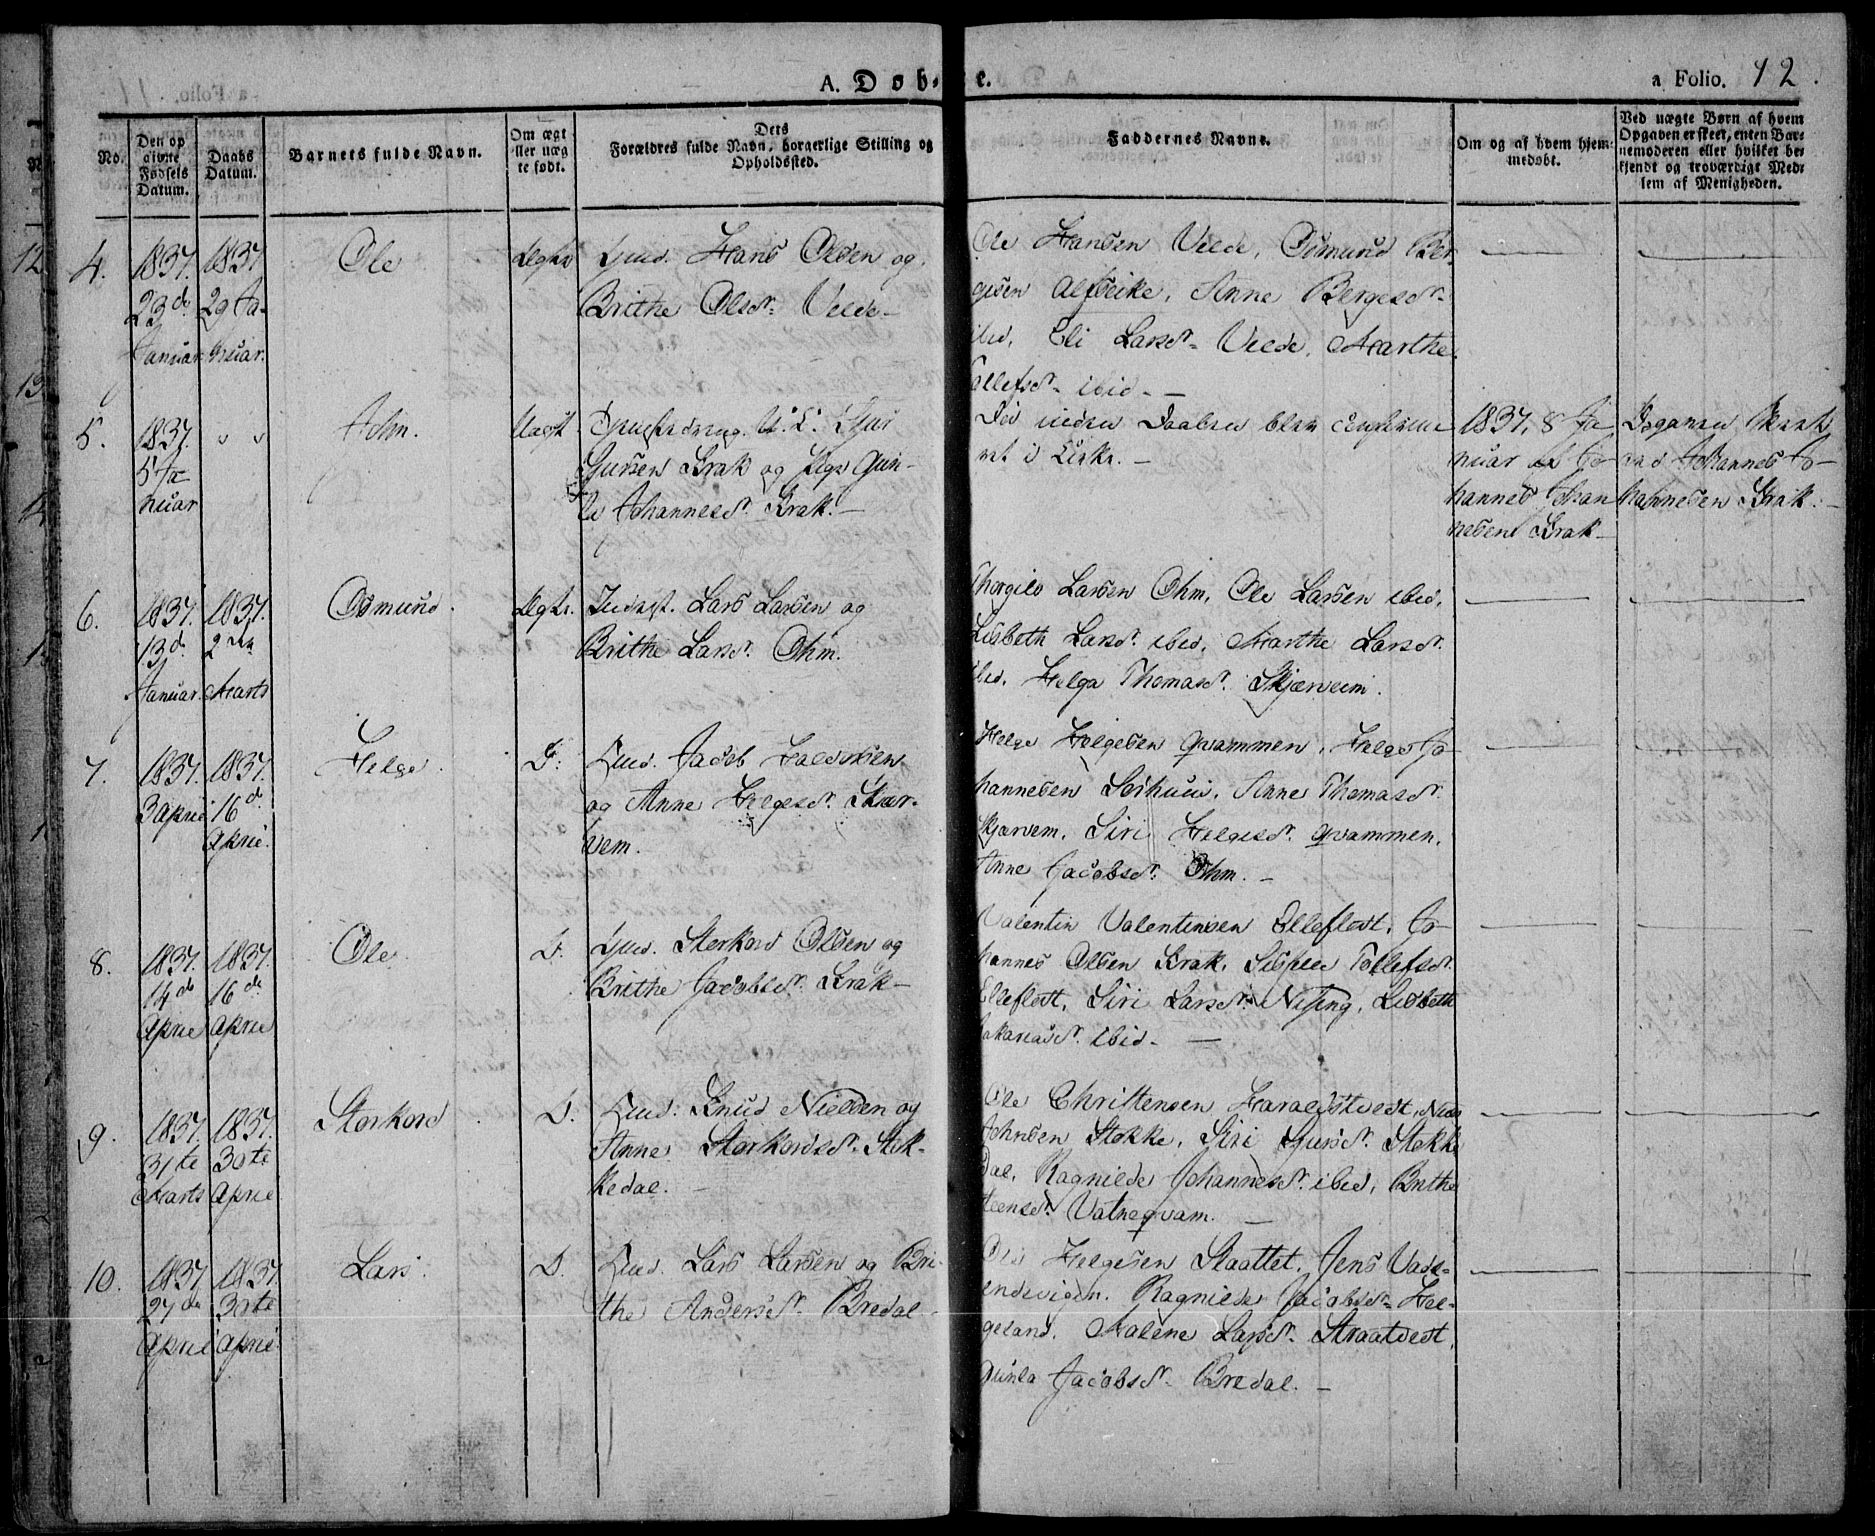 A. Døb- e. a Folio. 12.
No.
Den op
givne
Fødsels
Datum.
Daabs
Datum.
Barnets fulde Navn.
Om ægt
ller uæg
te født.
Dets
Forældres fulde Navn, borgerlige Stilling og
Opholdssted.
Faddernes Navne.
Om og af hvem hjem-
medøbt.
Ved uægte Børn af hvem
Opgaven er skeet, enten Bar-
nemoderen eller hvilket be-
kjendt og troværdigt Med-
lem af Menigheden.
4.
1837.
23d.
Januar.
1837
29 Ja-
nuar.
Ole
Ægte
Hans Olsen og
Brithe Olsdr. Velde-
Ole Hansen Velde, Osmund Ber-
gesen Alfseike, Anne Bergesdr.
ibid, Eli Larsdr. Velde, Marthe
Tollefsdr. ibid.-
5.
1837.
5 Ja
nuar
" "
John.
Uægt.
Gjur
Gjursen Krak og Pige Gun-
la Johannesdr. Krak.-
1837, 8 Ja
nuar af Jo-
hannes Johan
nesen Krak-
Opgaven skeet
ved Johannes Jo-
hannesen Krak.-
6.
1837.
13d.
Januar.
1837.
2den
Marts
Osmund.
Ægte.
Lars Larsen og
Brithe Larsdr. Ohm.
Thorgils Larsen Ohm, Ole Larsen ibid,
Lisbeth Larsdr. ibid, Marthe Larsdr.
ibid, Helga Thomasdr. Skjerveim.
7.
1837.
3 April
1837.
16d.
April.
Helge.
D:
Jacob
og Anne Helgesdr. Skier-
vem.
Helge Helgesen Qvammen, Helge Jo-
hannesen Anne Thomasdr.
Skjervem, Siri Helgesdr. Qvammen,
Anne Jacobsdr. Ohm.-
8.
1837.
14de
April
1837.
16de
April
Ole
D.
Storkord Olsen og
Brithe Jacobsdr. Krak-
Valentin Valentinsen Elleflodt, Jo-
hannes Olsen Krak, Tollefsdr.
Elleflodt, Siri Larsdr. Lisbeth
Sakariasdr. ibid.-
9.
1837.
31te
Marts
1837.
30te
April
Storkord
D.
Knud Nielsen og
Anne Storkordsdr. Stok-
kedal.-
Ole Christensen Haraldstvedt, Niels
Johnsen Stokke, Siri Gjursdr. Stokke
dal, Ragnilde Johannesdr. ibid, Brithe
Steensdr. Vatneqvam.-
10.
1837
27de
April
1837
30te
April
Lars.
D.
Lars Larsen og Bri-
the Andersdr. Bredal-
Ole Helgesen Jens Vads-
endvigen, Ragnilde Jacobsdr. Hel-
geland, Malene Larsdr. Straatvedt,
Gunla Jacobsdr. Bredal.-